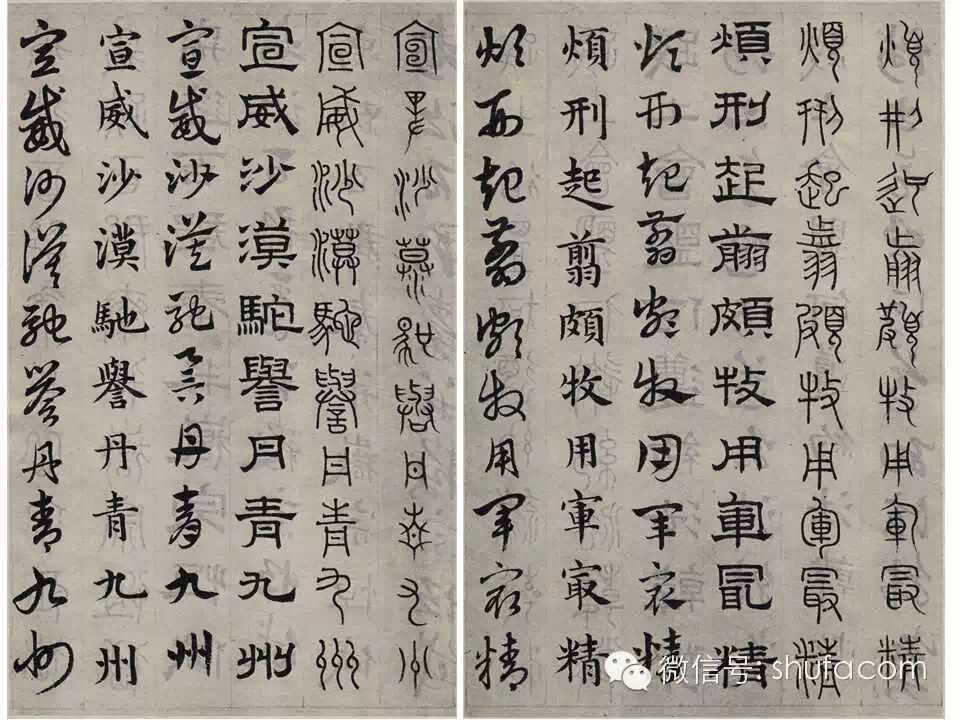 煩刑起翦頗牧用軍最精
煩刑起翦頗牧用軍最精
煩刑起翦頗牧用軍最精
煩刑起翦頗牧用軍最精
煩刑起翦頗牧用軍㝡精
煩刑起翦頗牧用軍最精
宣威沙漠馳譽丹青九州
宣威沙漠馳譽丹青九州
宣威沙漠馳譽丹青九州
宣威沙漠馳譽丹青九州
宣威沙漠馳譽丹青九州
宣威沙漠馳譽丹青九州
微信号: shufacom